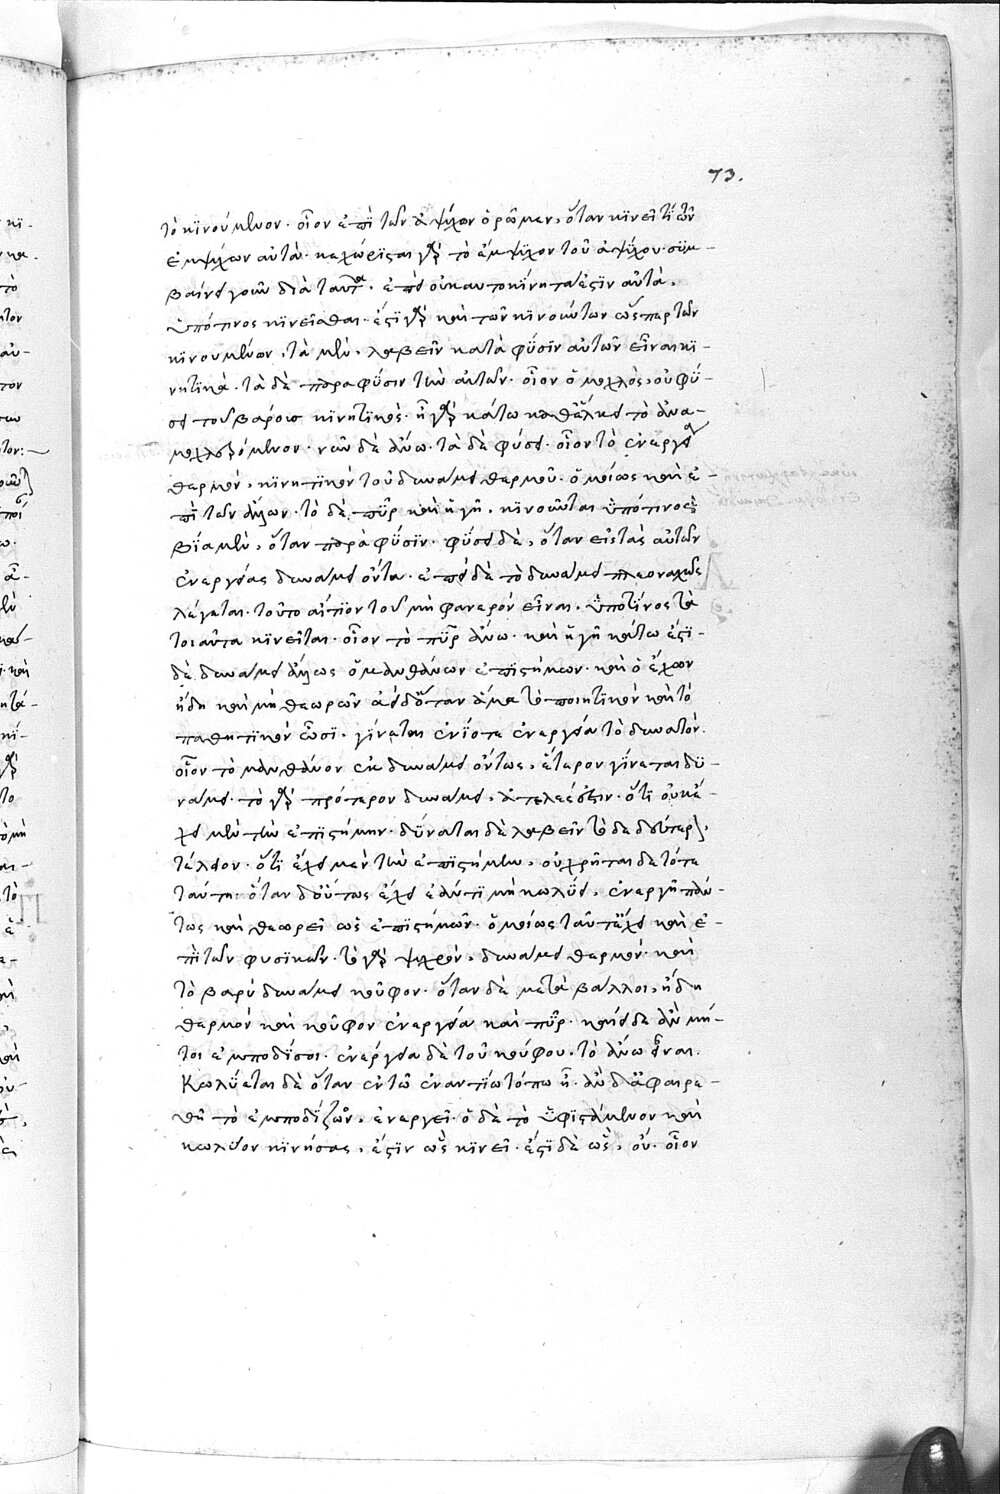 73.
τὸ κινούμενον· οἷον ἐπὶ τῶν ἀψύχων ὁρῶμεν, ὅταν κινεῖ τι τῶν
ἐμψύχων αὐτά· κεχώρισται γὰρ τὸ ἔμψυχον τοῦ ἀψύχου· συμ-
βαίνει γοῦν διὰ ταῦτα· ἐπεὶ οὐκ αυτοκίνητα ἐστιν αὐτὰ,
ὑπό τινος κινεῖσθαι· ἔστι γὰρ καὶ τῶν κινούντων ὥσπερ τῶν
κινουμένων, τὰ μὲν, λαβεῖν κατὰ φύσιν αὐτῶν εἶναι κι-
νητικά· τὰ δὲ παρὰ φύσιν τὴν αυτῶν· οἷον ὁ μοχλὸς, οὐ φύ-
σει τοῦ βάρους κινητικός· ἢ γὰρ κάτω καθέλκει τὸ ἀνα-
μοχλευόμενον· νῦν δὲ ἄνω· τὰ δὲ φύσει· οἷον τὸ ἐνεργείᾳ
θερμὸν, κινητικὸν τοῦ δυνάμει θερμοῦ· ὁμοίως καὶ ἐ-
πὶ τῶν ἄλλων· τὸ δὲ πῦρ καὶ ἡ γῆ, κινοῦνται ὑπό τινος
βίᾳ μὲν, ὅταν παρὰ φύσιν· φύσει δὲ, ὅταν εἰς τὰς αὐτῶν
ἐνεργείας δυνάμει ὄντα· ἐπεὶ δὲ τὸ δυνάμει πλεοναχῶς
λέγεται· τοῦτο αἴτιον τοῦ μὴ φανερόν εἶναι, ὑπο τίνος τὰ
τοιαῦτα κινεῖται· οἷον τὸ πῦρ ἄνω· καὶ ἡ γῆ κάτω ἔστι-
δὲ δυνάμει ἄλλως ὁ μανθάνων ἐπιστήμων· καὶ ὁ ἔχων
ἤδη καὶ μὴ θεωρῶν ἀεὶ δ' ὅταν ἅμα τὸ ποιητικὸν καὶ τὸ
παθητικὸν ὦσι· γίνεται ἐνίοτε ἐνεργείᾳ τὸ δυνατόν.
οἷον τὸ μανθάνον ἐκ δυνάμει ὄντως, ἕτερον γίνεται δυ-
νάμει· τὸ γὰρ πρότερον δυνάμει, ἀτελεές ἐστιν· ὅτι οὐκ ἔ-
χει μὲν τὴν ἐπιστήμην· δύναται δὲ λαβεῖν τὸ δε δεύτερον,
τέλειον· ὅτι ἔχει μὲν τὴν ἐπιστήμην, οὐ χρῆται δε τότε
ταύτῃ· ὅταν δ' οὕτως ἔχῃ ἐάν τι μὴ κωλύῃ, ἐνεργῆ πάν-
τως καὶ θεωρεῖ ὡς ἐπιστήμων· ὁμοίως ταῦτ' ἔχει καὶ ἐ-
πὶ τῶν φυσικῶν· τὸ γὰρ ψυχρόν, δυνάμει θερμόν· καὶ
τὸ βαρὺ δυνάμει κοῦφον· ὅταν δὲ μεταβάλλοι, ἤδη
θερμὸν καὶ κοῦφον ἐνεργείᾳ καὶ πῦρ· καὶ εἰ δε ἂν μή-
τοι ἐμποδίσοι· ἐνέργεια δὲ τοῦ κούφου, τὸ ἄνω εἶναι.
Κωλύεται δὲ ὅταν ἐν τῶ ἐναντίω τόπω ἦ· ἂν δ' ἀφαιρε-
θῆ τὸ ἐμποδίζων, ἐνεργεῖ· ὁ δὲ τὸ ὑφιστάμενον καὶ
κωλύον κινήσας, ἔστιν ὡς κινεῖ· ἔστι δὲ ὡς, οὐ· οἷον